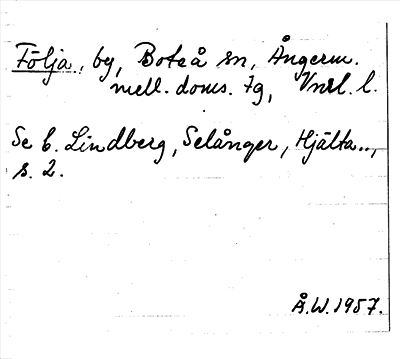 Följa, by, Boteå sn, Ångerm.
mell. doms. tg, Vnrl. l.
Se C. Lindberg, Selånger, Hjälta..,
s. 2.
Å.W. 1957.